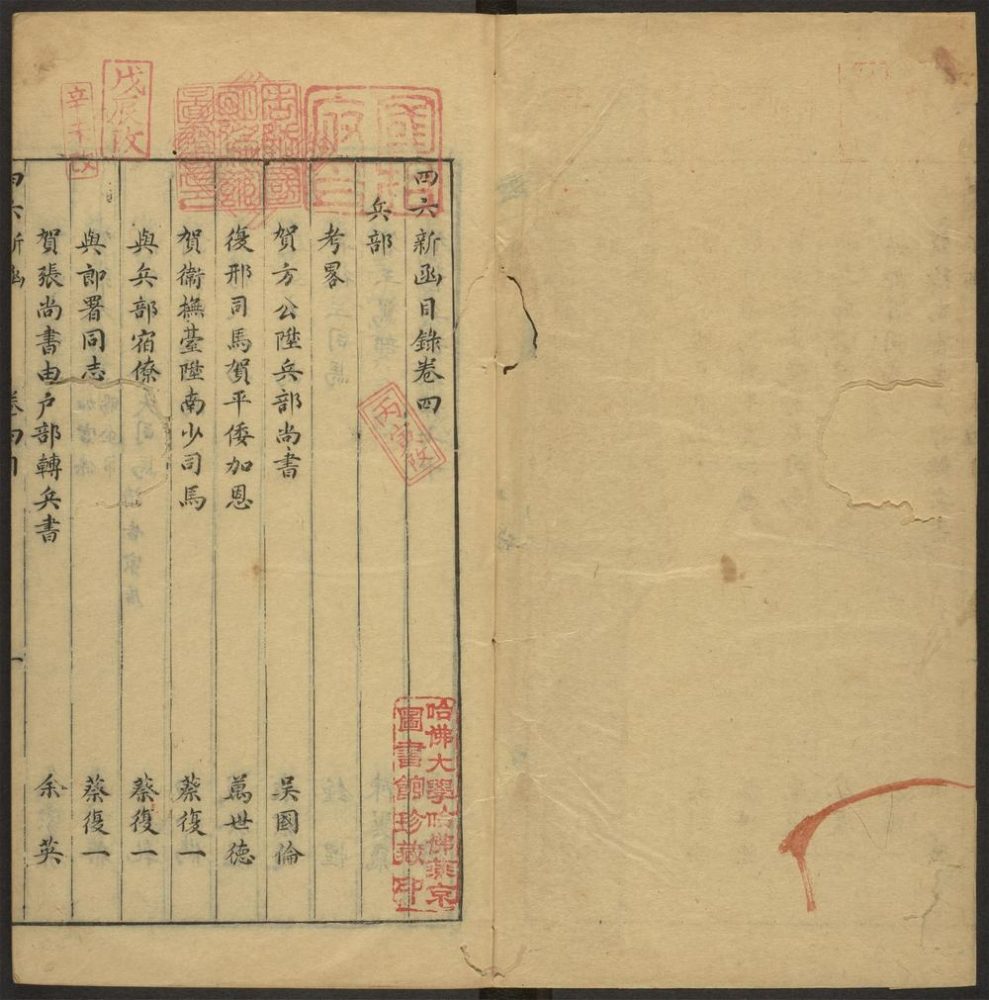 四六新函目錄卷四
兵部
考畧
賀方公陞兵部尚書 吴國倫
復邢司馬賀平倭加恩 萬世德
賀衛撫臺陞南少司馬 蔡復一
與兵部宿僚 蔡復一
與郎署同志 蔡復一
賀張尚書由户部轉兵書 余 英
四六新函 卷四目 一
戊辰改
辛未改
丙寅改
哈佛大學哈佛燕京
圖書館珍藏印